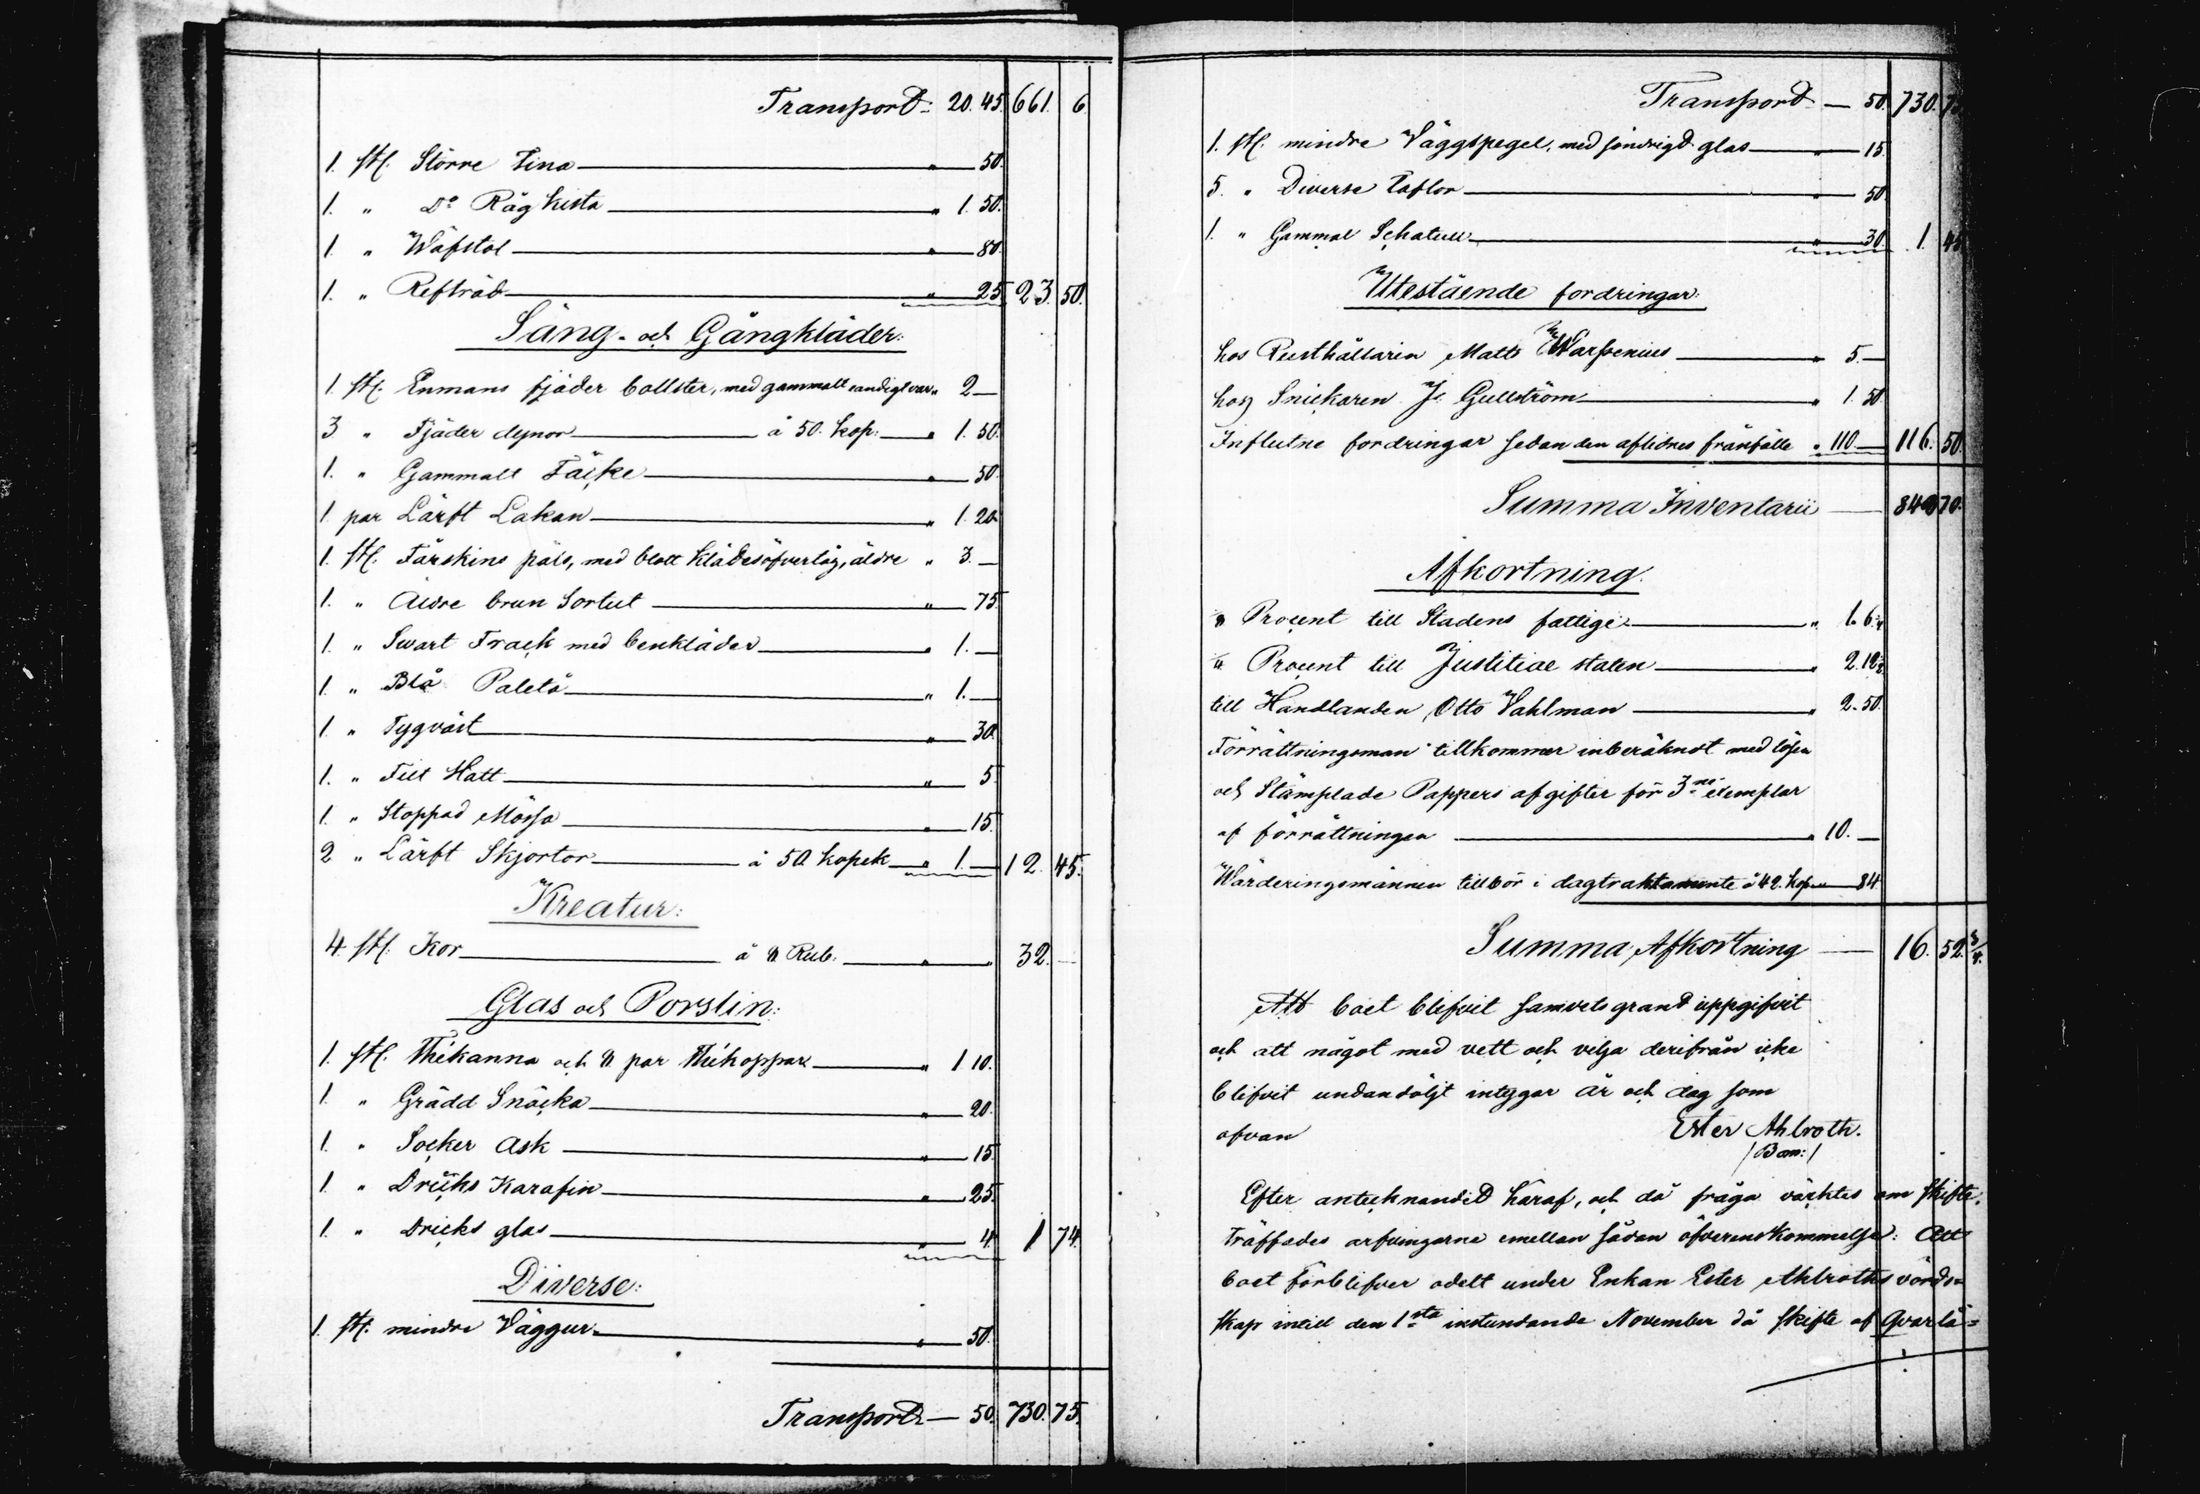 Transport: 20. 45. 661. 6
1. st. Större Tina " 50.
1. " Do Råg kista " 1. 50.
1 " Wäfstol " 80.
1. " Refträd " 25. 23. 50.
Säng- och Gångkläder:
1 st. Enmans fjäder bollster, med gammalt randigt var " 2 —
3 " Fjäder dynor à 50. kop: " 1. 50.
1. " Gammalt Täcke " 50.
1 par Lärft Lakan " 1. 20.
1. st. Fårskins päls, med blott klädesöfverlåg, äldre " 3. —
1. " Äldre brun Sortut " 75.
1 " Swart Frack med benkläder " 1. —
1 " Blå Paletå " 1. —
1 " Tygväst " 30.
1. " Filt Hatt " 5.
1 " Stoppad Mössa " 15.
2 " Lärft Skjortor à 50 kopek " 1. — 12. 45.
Kreatur:
4 st. Kor à 8 Rub. " " 32. —
Glas och Porslin:
1. st. Thékanna och 8 par Thékoppar " 1 10.
1 " Grädd Snäcka " 20.
1 " Socker Ask " 15.
1 " Dricks Karafin " 25.
1. " Dricks glas " 4. 1 74.
Diverse:
1. st. mindre Väggur " 50.
Transport — 50. 730. 75.
Transport — 50. 730. 75
1. st. mindre Väggspegel, med söndrigt glas " 15.
5. " Diverse Taflor " 50.
1. " Gammal Schatull " 30. 1. 45
Utestående fordringar:
hos Rusthållarin Matts Warfvenius " 5. —
hos Snickaren J. Gullström " 1. 50
Influtne fordringar sedan den aflidnes frånfälle " 110 — 116. 50.
Summa Inventarii — 848 70.
Afkortning.
Procent till Stadens fattige " 1. 6.
Procent till Justitiae staten " 2. 12
till Handlanden Otto Vahlman " 2. 50.
Förrättningsman tillkommer inberäknat med lösen
och Stämplade Pappers afgifter för 3ne exemplar
af förrättningen " 10. —
Wärderingsmännen tillbör i dagtraktamente à 42. kop " 84
Summa Afkortning — 16. 52. 3/4.
Att boet blifvit samvetsgrant uppgifvit
och att något med vett och vilja derifrån icke
blifvit undandöljt intygar År och dag som
ofvan Ester Ahlroth.
/Bom:/
Efter antecknandet häraf, och då fråga väcktes om skifte,
träffades arfvingarne emellan sådan öfverenskommelse: Att
boet förblifver odelt under Enkan Ester Ahlroths vårds=
skap intill den 1sta instundande November då skifte af Qvarlå=